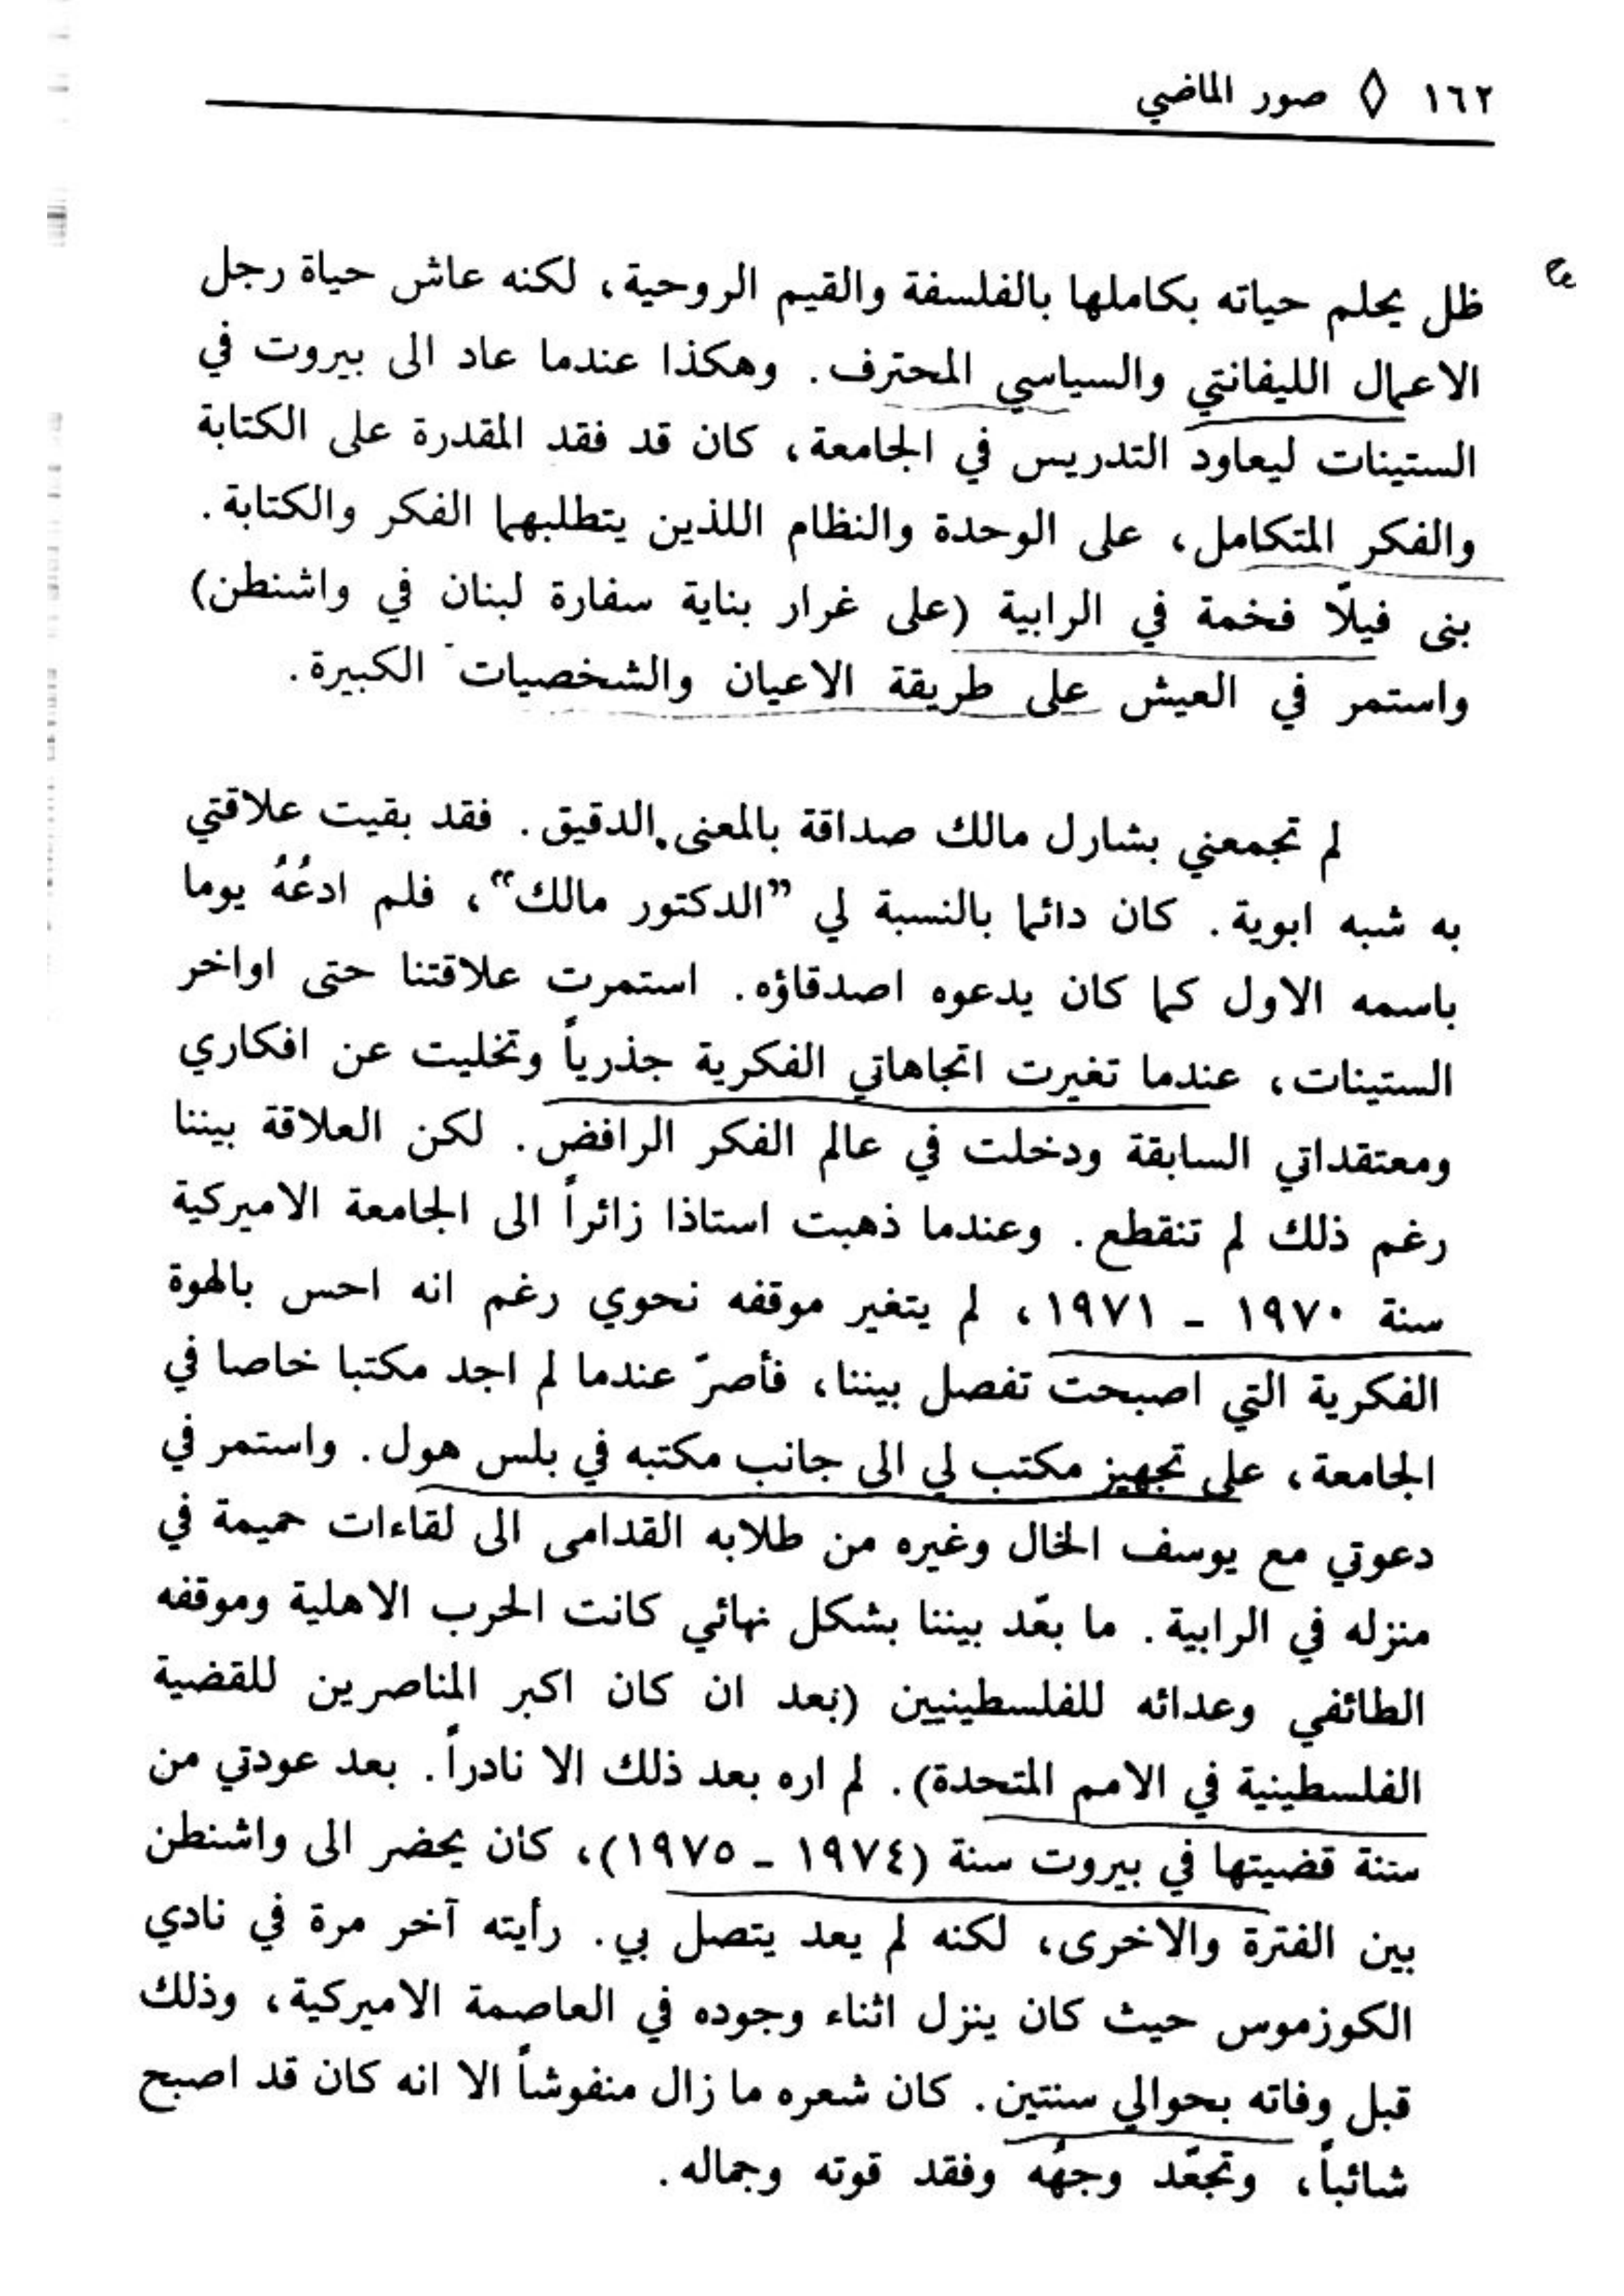 ١٦٢ ◊ صور الماضي
ظل يحلم حياته بكاملها بالفلسفة والقيم الروحية، لكنه عاش حياة رجل
الاعمال الليفانتي والسياسي المحترف. وهكذا عندما عاد الى بيروت في
الستينات ليعاود التدريس في الجامعة، كان قد فقد المقدرة على الكتابة
والفكر المتكامل، على الوحدة والنظام اللذين يتطلبهما الفكر والكتابة.
بنى فيلّا فخمة في الرابية (على غرار بناية سفارة لبنان في واشنطن)
واستمر في العيش على طريقة الاعيان والشخصيات الكبيرة.
لم تجمعني بشارل مالك صداقة بالمعنى الدقيق. فقد بقيت علاقتي
به شبه ابوية. كان دائما بالنسبة لي ”الدكتور مالك“، فلم ادعُهُ يوما
باسمه الاول كما كان يدعوه اصدقاؤه. استمرت علاقتنا حتى اواخر
الستينات، عندما تغيرت اتجاهاتي الفكرية جذرياً وتخليت عن افكاري
ومعتقداتي السابقة ودخلت في عالم الفكر الرافض. لكن العلاقة بيننا
رغم ذلك لم تنقطع. وعندما ذهبت استاذا زائراً الى الجامعة الاميركية
سنة ١٩٧٠ - ١٩٧١، لم يتغير موقفه نحوي رغم انه احس بالهوة
الفكرية التي اصبحت تفصل بيننا، فأصرّ عندما لم اجد مكتبا خاصا في
الجامعة، على تجهيز مكتب لي الى جانب مكتبه في بلس هول. واستمر في
دعوتي مع يوسف الخال وغيره من طلابه القدامى الى لقاءات حميمة في
منزله في الرابية. ما بعّد بيننا بشكل نهائي كانت الحرب الاهلية وموقفه
الطائفي وعدائه للفلسطينيين (بعد ان كان اكبر المناصرين للقضية
الفلسطينية في الامم المتحدة). لم اره بعد ذلك الا نادراً. بعد عودتي من
سنة قضيتها في بيروت سنة (١٩٧٤ - ١٩٧٥)، كان يحضر الى واشنطن
بين الفترة والاخرى، لكنه لم يعد يتصل بي. رأيته آخر مرة في نادي
الكوزموس حيث كان ينزل اثناء وجوده في العاصمة الاميركية، وذلك
قبل وفاته بحوالي سنتين. كان شعره ما زال منفوشاً الا انه كان قد اصبح
شائباً، وتجعّد وجهُه وفقد قوته وجماله.